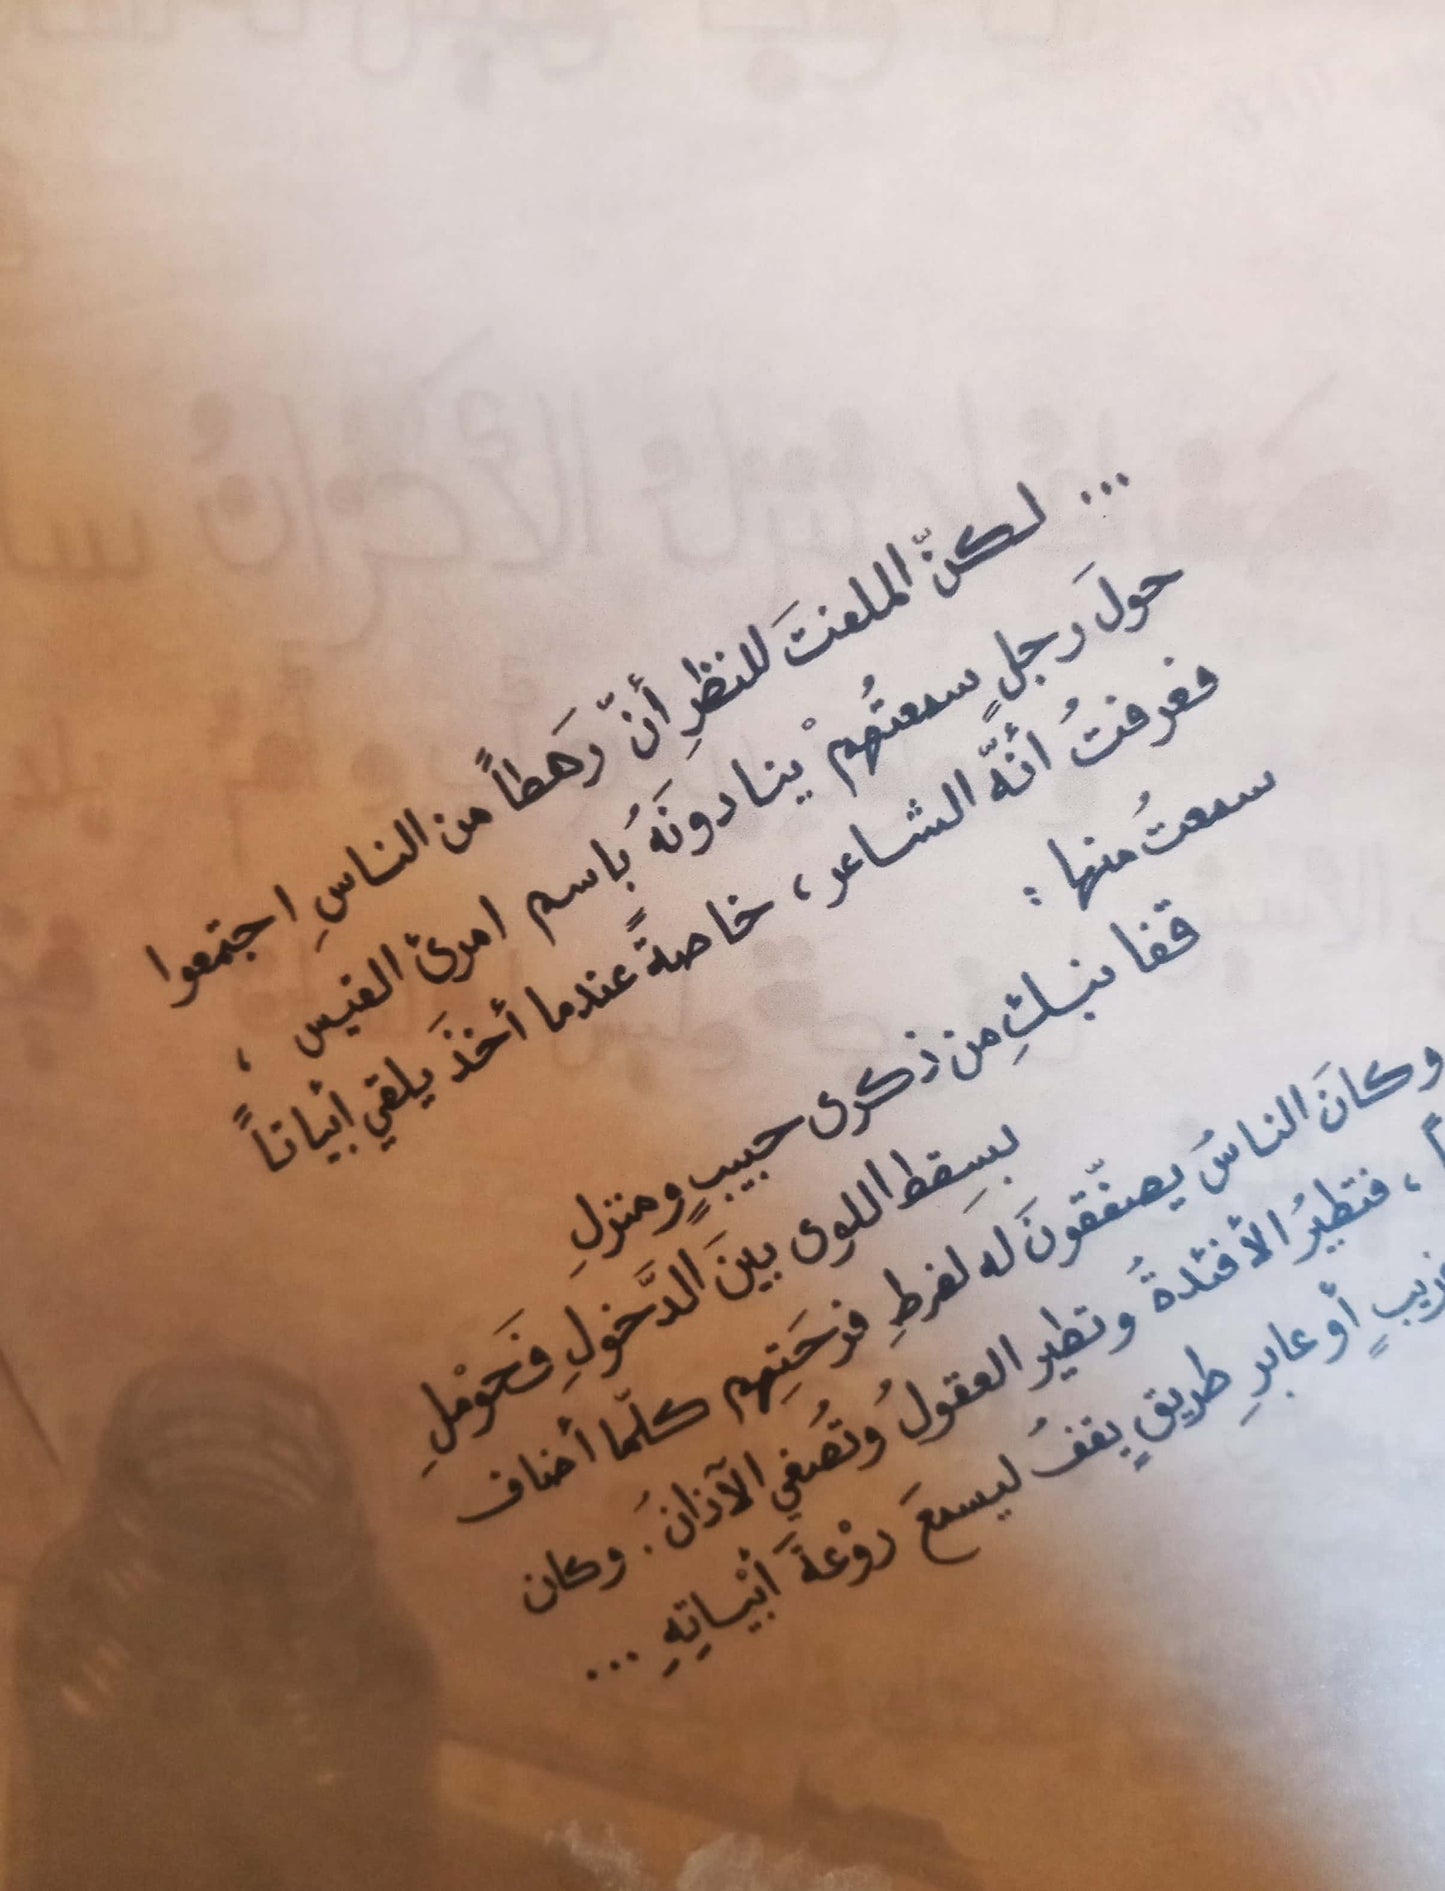 ... لكنّ الملفتَ للنظرِ أنّ رَهطاً من الناسِ اجتمعوا
حولَ رجلٍ سمعتُهمْ ينادونَهُ بِاسم امرئ القيس ،
فعرفتُ أنهّ الشاعر ، خاصةً عندما أخذَ يلقي أبياتاً
سمعتُ منها :
قفا نبكِ من ذكرى حبيبٍ ومنزلِ
بسِقط اللوى بينَ الدَّخولِ فَحَوْملِ
وكانَ الناسُ يصفّقونَ له لفرطِ فرحَتِهم كلّما أضاف
، فتطيرُ الأفئدةُ وتطير العقولُ وتُصغي الآذانُ . وكان
أو عابرِ طريقٍ يقفُ ليسمعَ روْعةَ أبْياتِهِ ...